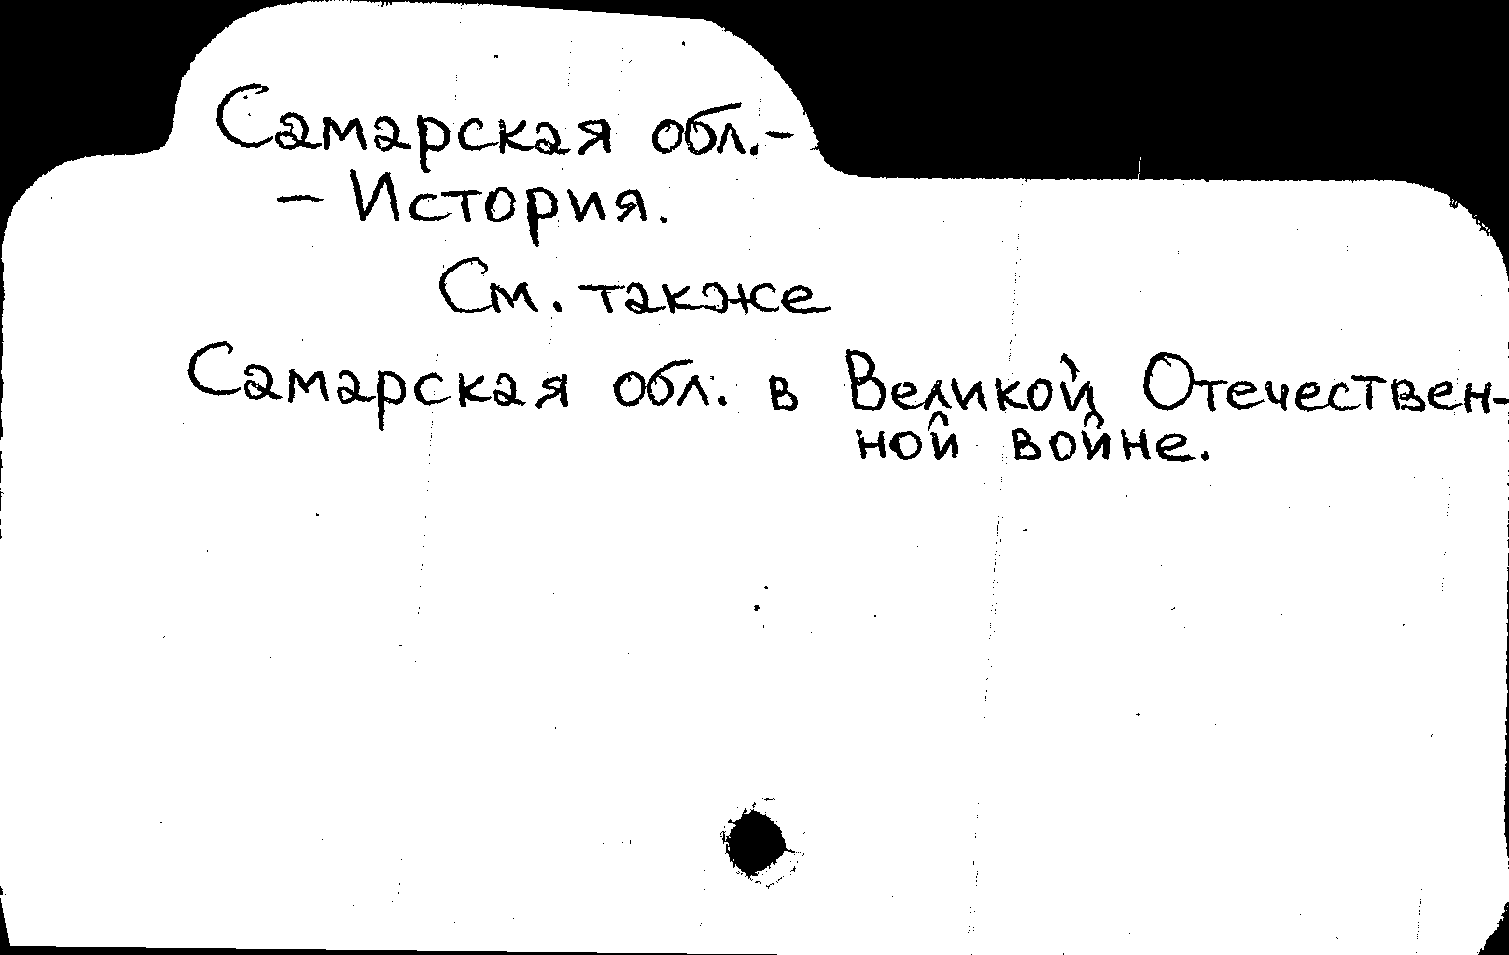 Самарская обл.-
- История.
См. также
Самарская обл. в Великой Отечествен-
ной войне.